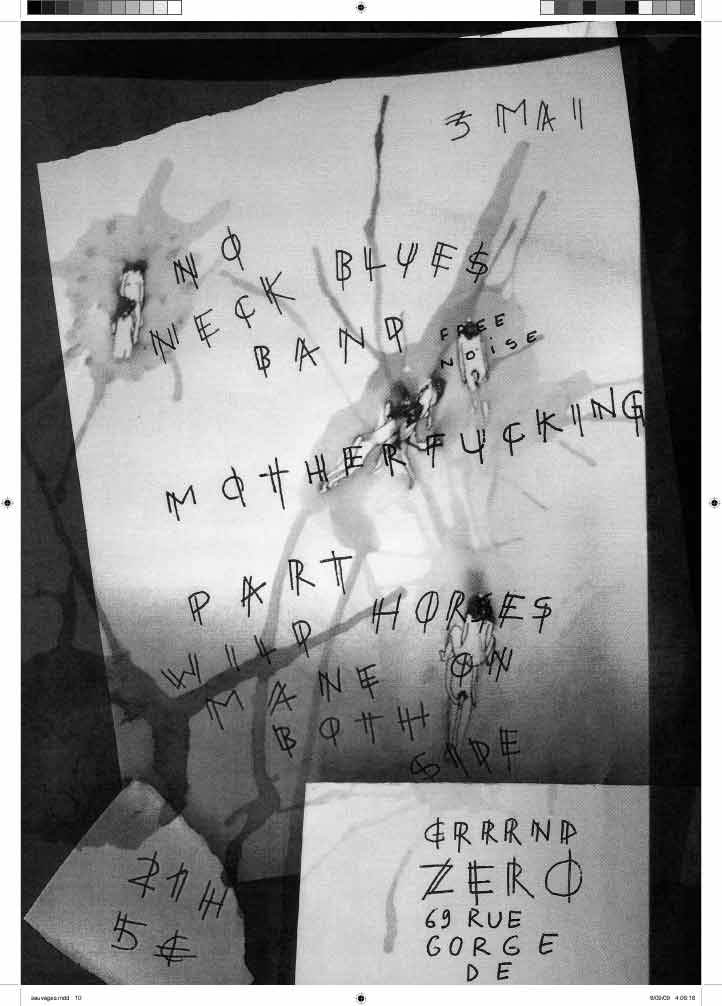 3 MAI
NO
NECK BLUES
BAND
FREE
NOiSE
MOTHERFUCKING
PART
WILD HORSES
MANE ON
BOTH
SIDE
21H
5€
GRRRND
ZERO
69 RUE
GORGE
DE
sauvages.indd 10
9/09/09 4:06:16